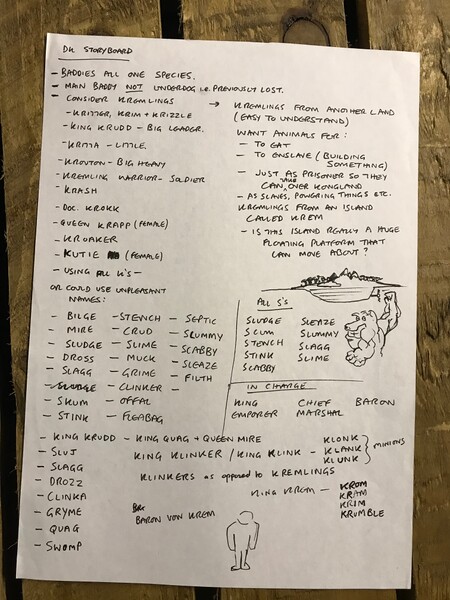 DK STORYBOARD
- BADDIES ALL ONE SPECIES.
- MAIN BADDY NOT UNDERDOG i.e. PREVIOUSLY LOST.
- CONSIDER KREMLINGS
- KRITTER, KRIM + KRIZZLE
- KING KRUDD - BIG LEADER.
- LITTLE.
- KROUTON - BIG HEAVY
- KREMLING WARRIOR - SOLDIER
- KRASH
- DOC. KROKK
- QUEEN KRAPP (FEMALE)
- KROAKER
- KUTIE (FEMALE)
- USING ALL K'S -
OR COULD USE UNPLEASANT
NAMES:
- BILGE
- MIRE
- SLUDGE
- DROSS
- SLAGG
- SLUDGE
- SKUM
- STINK
- STENCH
- CRUD
- SLIME
- MUCK
- GRIME
- CLINKER
- OFFAL
- FLEABAG
- SEPTIC
- SLUMMY
- SCABBY
- SLEAZE
- FILTH
→ KREMLINGS FROM ANOTHER LAND
(EASY TO UNDERSTAND)
WANT ANIMALS FOR:
- TO EAT
- TO ENSLAVE (BUILDING
SOMETHING)
- JUST AS PRISONER SO THEY
CAN TAKE OVER KONGLAND
- AS SLAVES, POWERING THINGS ETC.
KREMLINGS FROM AN ISLAND
CALLED KREM
- IS THIS ISLAND REALLY A HUGE
FLOATING PLATFORM THAT
CAN MOVE ABOUT?
ALL S'S
SLUDGE
SCUM
STENCH
STINK
SCABBY
SLEAZE
SLUMMY
SLAGG
SLIME
IN CHARGE
KING CHIEF BARON
EMPORER MARSHAL
- KING KRUDD - KING QUAG + QUEEN MIRE
- SLUJ
- SLAGG
- DROZZ
- CLINKA
- GRYME
- QUAG
- SWOMP
KING KLINKER / KING KLINK -
KLONK
KLANK
KLUNK
MINIONS
KLINKERS as opposed to KREMLINGS
KING KREM -
KROM
KRAM
KRIM
KRUMBLE
BARON VON KREM